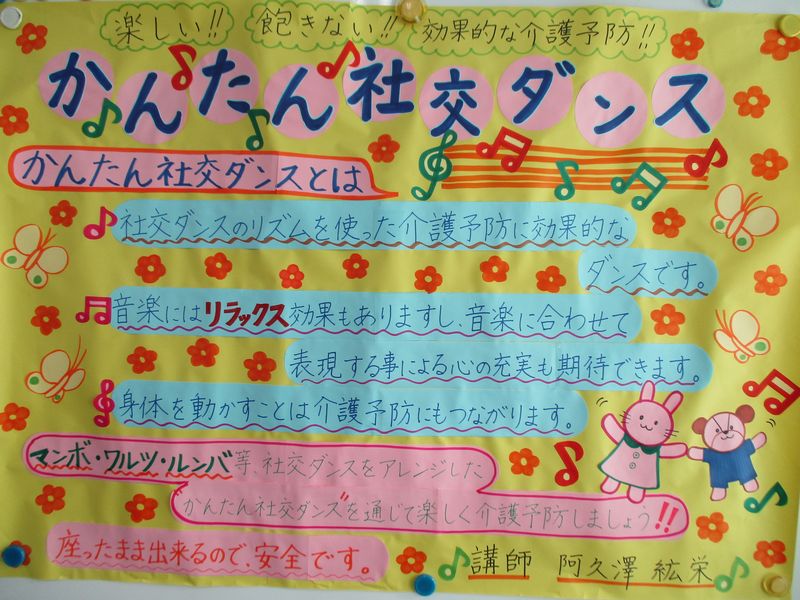 楽しい!! 飽きない!! 効果的な介護予防!!
かんたん社交ダンス
かんたん社交ダンスとは
社交ダンスのリズムを使った介護予防に効果的な
ダンスです。
音楽にはリラックス効果もありますし、音楽に合わせて
表現する事による心の充実も期待できます。
身体を動かすことは介護予防にもつながります。
マンボ・ワルツ・ルンバ等、社交ダンスをアレンジした
かんたん社交ダンス"を通じて楽しく介護予防しましょう!!
座ったまま出来るので、安全です。
講師 阿久澤 紘栄